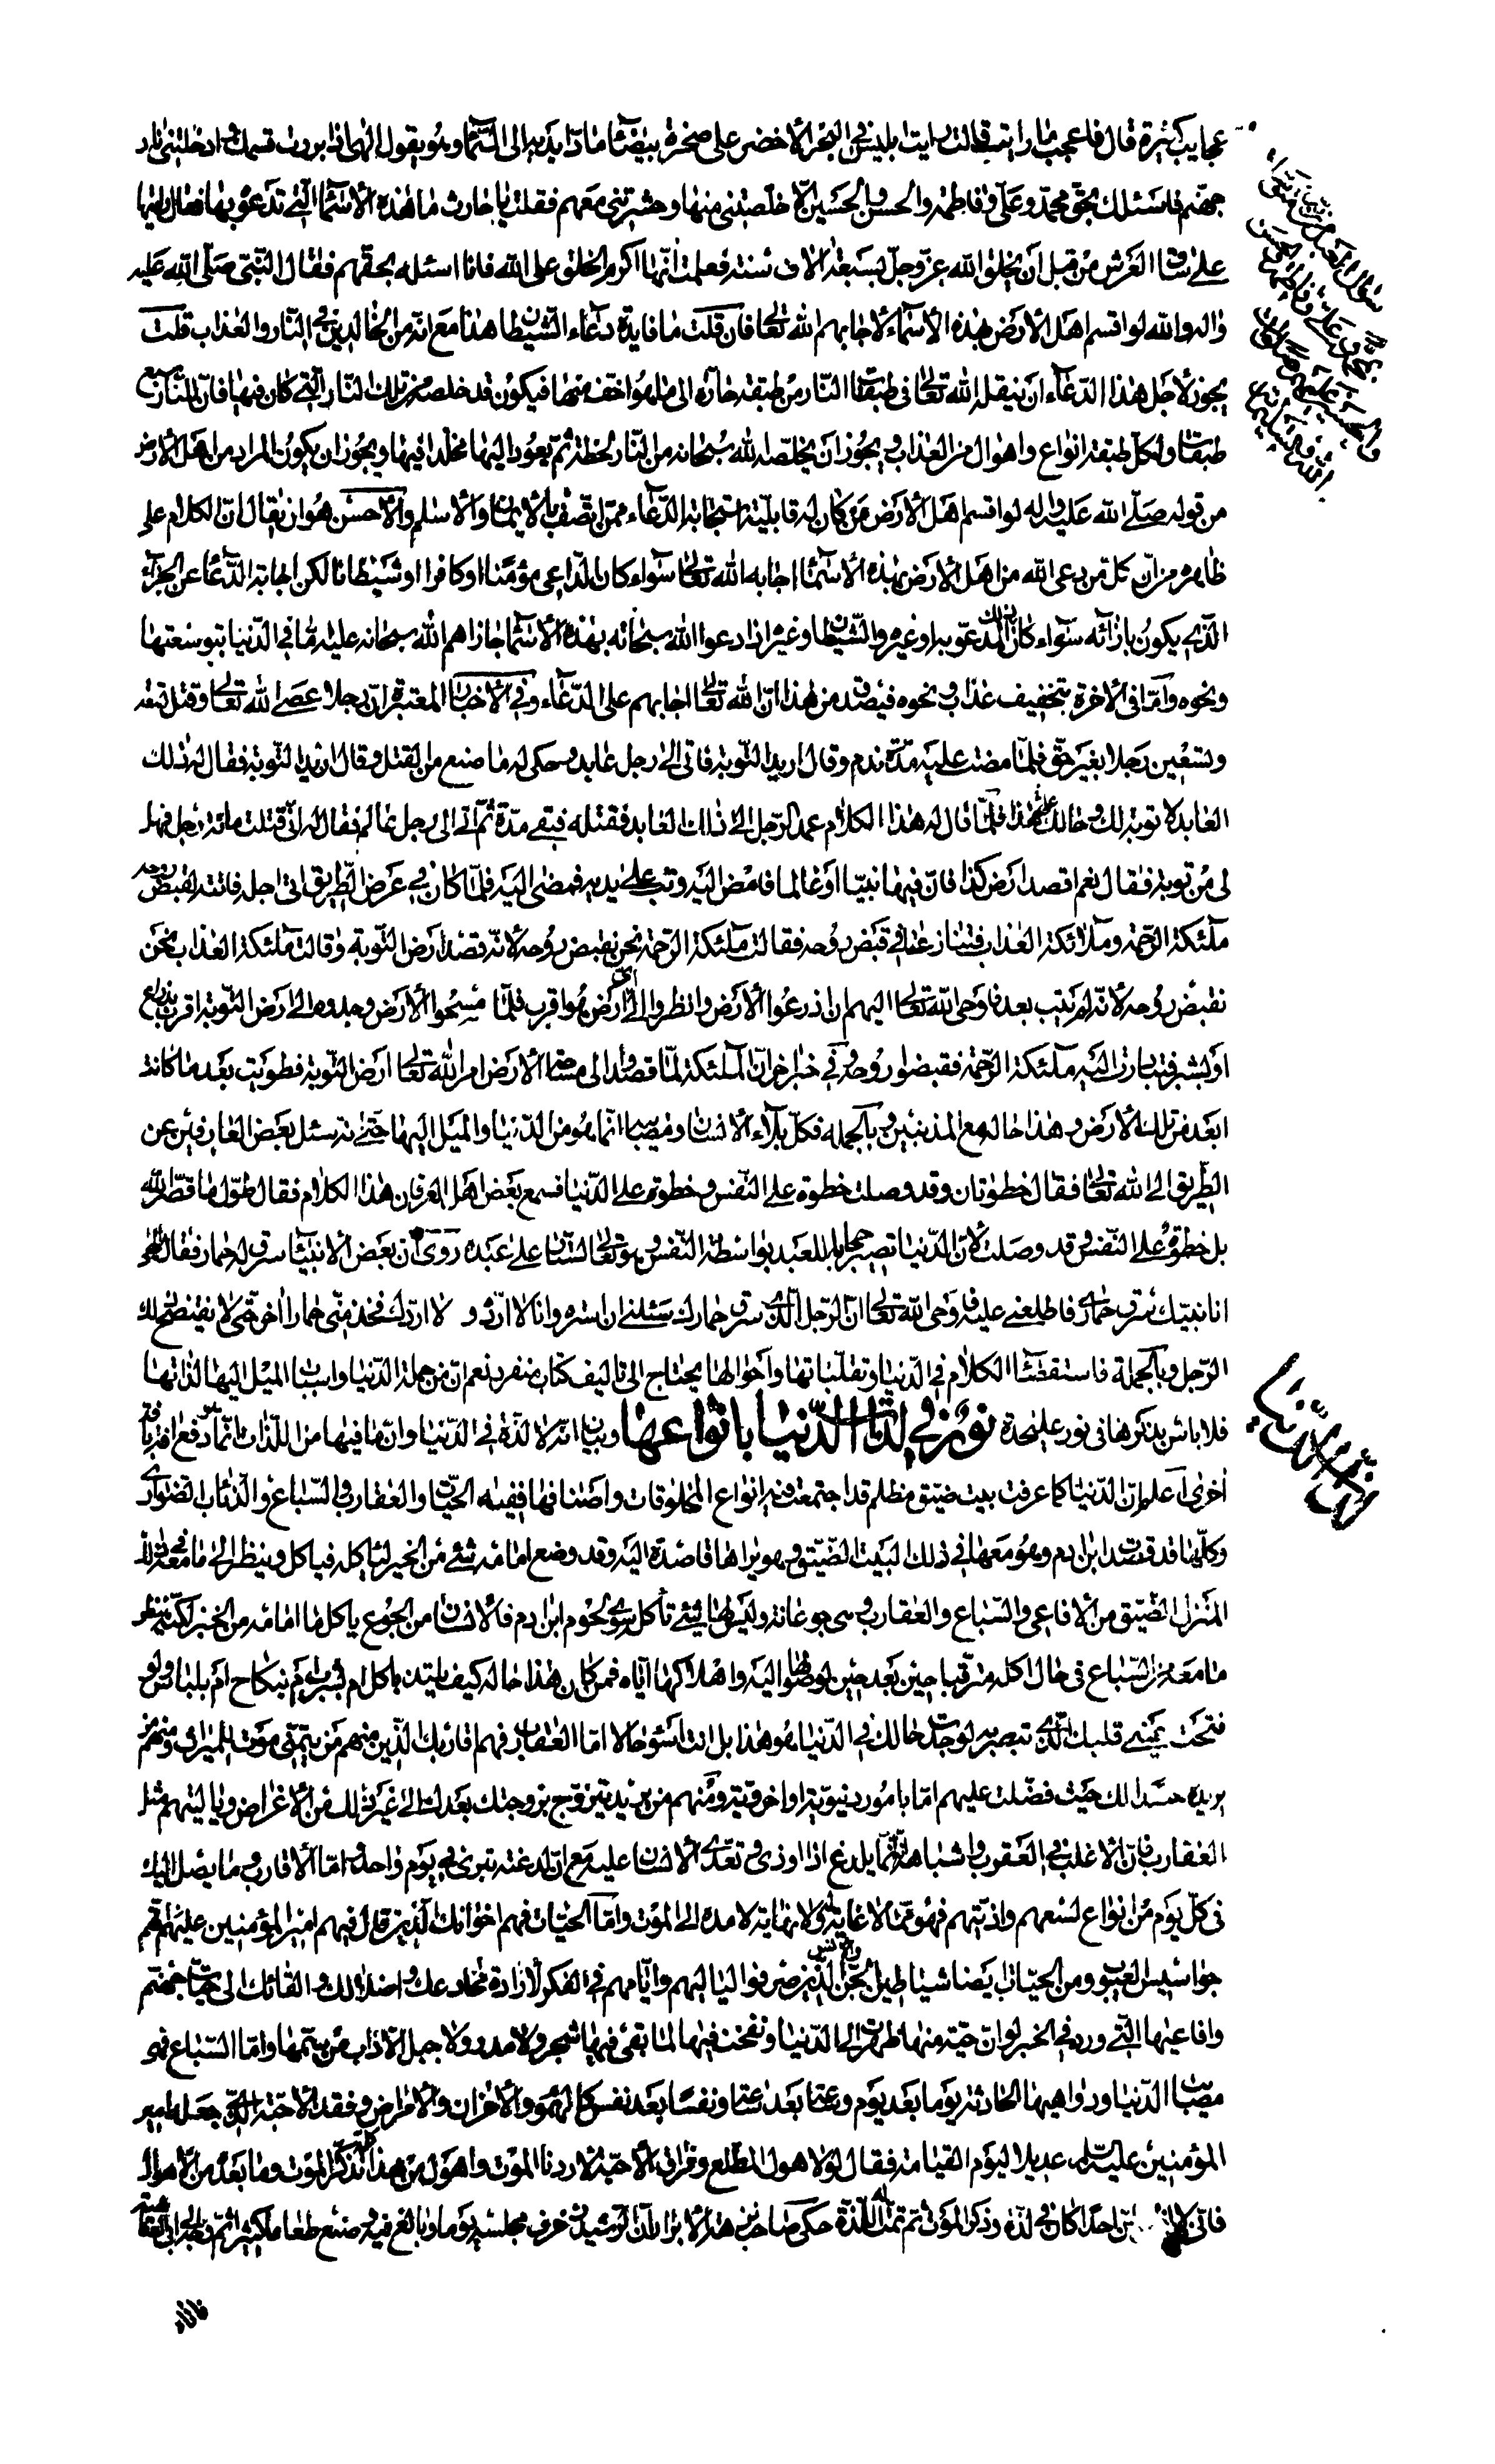 عجايب كثيرة قال فاعجب ما رايت قالت رايت ابليس في البحر الأخضر على صخرة بيضاء مادا يديه الى السماء وهو يقول الهي اذا بررت قسمك وادخلتني نار
جهنم فاسئلك بحق محمد وعلي وفاطمة والحسن والحسين الا خلصتني منها وحشرتني معهم فقلت يا حارث ما هذه الأسماء التي تدعو بها فقال رايتها
على ساق العرش من قبل ان يخلق الله عز وجل بسبعة الاف سنة فعلمت انها اكرم الخلق على الله فانا اسئله بحقهم فقال النبي صلى الله عليه
واله والله لو اقسم اهل الأرض بهذه الأسماء لأجابهم الله تعالى فان قلت ما فايدة دعاء الشيطان هذا مع انه من الخالدين في النار والعذاب قلت
يجوز لأجل هذا الدعاء ان ينقله الله تعالى في طبقات النار من طبقة حارة الى ما هو اخف منها فيكون قد خلصه من تلك النار التي كان فيها فان للنار سبع
طبقات ولكل طبقة انواع واهوال من العذاب ويجوز ان يخلصه الله سبحانه من النار لحظة ثم يعود اليها مخلدا فيها ويجوز ان يكون المراد من اهل الأرض
من قوله صلى الله عليه واله لو اقسم اهل الأرض من كان له قابلية استجابة الدعاء ممن اتصف بالأيمان والأسلم والأحسن هو ان يقال ان الكلام على
ظاهره من ان كل من دعى الله من اهل الأرض بهذه الأسماء اجابه الله تعالى سواء كان الداعي مؤمنا او كافرا او شيطانا لكن اجابة الدعاء عن الجزاء
الذي يكون بازائه سواء كان المدعو به او غيره والشيطان وغيره اذا دعوا الله سبحانه بهذه الأسماء جازاهم الله سبحانه عليه اما في الدنيا بتوسعتها
ونحوه واما في الأخرة بتخفيف عذاب ونحوه فيصدق من هذا ان الله تعالى اجابهم على الدعاء وفي الأخبار المعتبرة ان رجلا عصى الله تعالى وقتل تسعة
وتسعين رجلا بغير حق فلما مضت عليه مدة ندم وقال اريد التوبة فاتى الى رجل عابد وحكى له ما صنع من القتل وقال اريد التوبة فقال له ذلك
العابد لا توبة لك وحالك هذا فلما قال له هذا الكلام عمد الرجل الى ذلك العابد فقتله فبقى مدة ثم اتى الى رجل عالم فقال له اني قتلت مائة رجل فهل
لي من توبة فقال نعم اقصد ارض كذا فان فيها نبيا او عالما فامض اليه وتب على يديه فمضى اليه فلما كان في عرض الطريق اتى اجله فاتته لقبض روحه
ملئكة الرحمة وملائكة العذاب فتنازعتا في قبض روحه فقالت ملئكة الرحمة نحن نقبض روحه لأنه قصد ارض التوبة وقالت ملئكة العذاب نحن
نقبض روحه لأنه لم يتب بعد فاوحى الله تعالى اليهم ان اذرعوا الأرض وانظروا الى اي ارض هو اقرب فلما مسحوا الأرض وجدوه الى ارض التوبة اقرب بذراع
او بشبر فتبادرت اليه ملئكة الرحمة فقبضوا روحه وفي خبر اخر ان الملئكة لما قصدوا الى مساحة الأرض امر الله تعالى ارض التوبة فطويت بعد ما كانت
ابعد من تلك الأرض وهذا حاله مع المذنبين وبالجملة فكل بلاء الأنسان ومصابه انما هو من الدنيا والميل اليها حتى انه سئل بعض العارفين عن
الطريق الى الله تعالى فقال خطوتان وقد وصلت خطوة على النفس وخطوة على الدنيا فسمع بعض اهل العرفان هذا الكلام فقال طول ما قصر الله
بل خطوة على النفس وقد وصلت لأن الدنيا تصير حجابا للعبد بواسطة النفس وهو تعالى الستار على عبده روى ان بعض الأنبياء سرق له حمار فقال الهي
انا نبيك سرق حماري فاطلعني عليه فاوحى الله تعالى ان الرجل الذي سرق حمارك سئلني ان استره وانا لا ارده ولا اردك فخذ مني حمارا اخر حتى لا يفتضح ذلك
الرجل وبالجملة فاستقصاء الكلام في الدنيا وتقلباتها واحوالها يحتاج الى تاليف كتاب منفرد نعم ان من جملة الدنيا واسباب الميل اليها لذاتها
فلا باس بذكرها في نور عليحدة نور في لذات الدنيا بانواعها وبيان انه لا لذة في الدنيا وان ما فيها من اللذات انما هو رفع افة بافة
اخرى اعلم ان الدنيا كما عرفت بيت ضيق مظلم قد اجتمعت فيه انواع المخلوقات واصنافها ففيه الحيات والعقارب والسباع والذئاب الضواري
وكلها قد قصدت ابن ادم وهو معها في ذلك البيت الضيق وهو يراها قاصدة اليه وقد وضع امامه شئ من الخبز لياكله فياكل وينظر الى ما معه في ذلك
المنزل الضيق من الأفاعي والسباع والعقارب وهي جوعانة وليس لها شئ تأكل سوى لحوم ابن ادم فالأنسان من الجوع ياكل ما امامه من الخبز لكنه ينظر
ما معه من السباع في حال اكله مترقبا حينا بعد حين لوصولها اليه واهلاكها اياه فمن كان هذا حاله كيف يلتذ باكل ام بشرب ام بنكاح ام بلباس ولو
فتحت عيني قلبك الذي تبصر به لوجدت حالك في الدنيا هو هذا بل انت اسوء حالا اما العقارب فهم اقاربك الذين منهم من يتمنى موتك للميراث ومنهم من
يريده حسدا لك حيث فضلت عليهم اما بامور دنيوية او اخروية ومنهم من يريد يتزوج بزوجتك بعدك الى غير ذلك من الأغراض ويا ليتهم مثل
العقارب فان الأغلب في العقرب واشباهه انه انما يلدغ اذا اوذي وتعدى الأنسان عليه مع ان لدغته تبرئ في يوم واحد واما الأقارب وما يصل اليك
في كل يوم من انواع لسعهم واذيتهم فهو مما لا غاية له ولا نهاية لامده الى الموت واما الحيات فهم اخوانك الذين قال فيهم امير المؤمنين عليه السلام انهم
جواسيس العيوب ومن الحيات ايضا شياطين الجن والأنس الذين صرفوا لياليهم وايامهم في الفكر لارادة مخادعتك واضلالك والقائك الى حيات جهنم
وافاعيها التي ورد في الخبر لو ان حية منها ظهرت الى الدنيا ونفخت فيها لما بقى فيها شجر ولا مدر ولا جبل الا ذاب من سمها واما السباع فهي
مصائب الدنيا ودواهيها الحادثة يوما بعد يوم وساعة بعد ساعة ونفسا بعد نفس كالهموم والأحزان والأمراض وفقد الأحبة الذي جعله امير
المؤمنين عليه السلام عديلا ليوم القيامة فقال لولا هول المطلع وفراق الأحبة لاردنا الموت واهول من هذا كله تذكر الموت وما بعده من الأهوال
فاني لا احدا كان في لذة وذكر الموت ثم تمت له اللذة حكى صاحب زينة الأبرار ان الرشيد زخرف مجلسه يوما وبالغ فيه وصنع طعاما كثيرا ثم دعى ابا العتاهية
لذات الدنيا
فقال